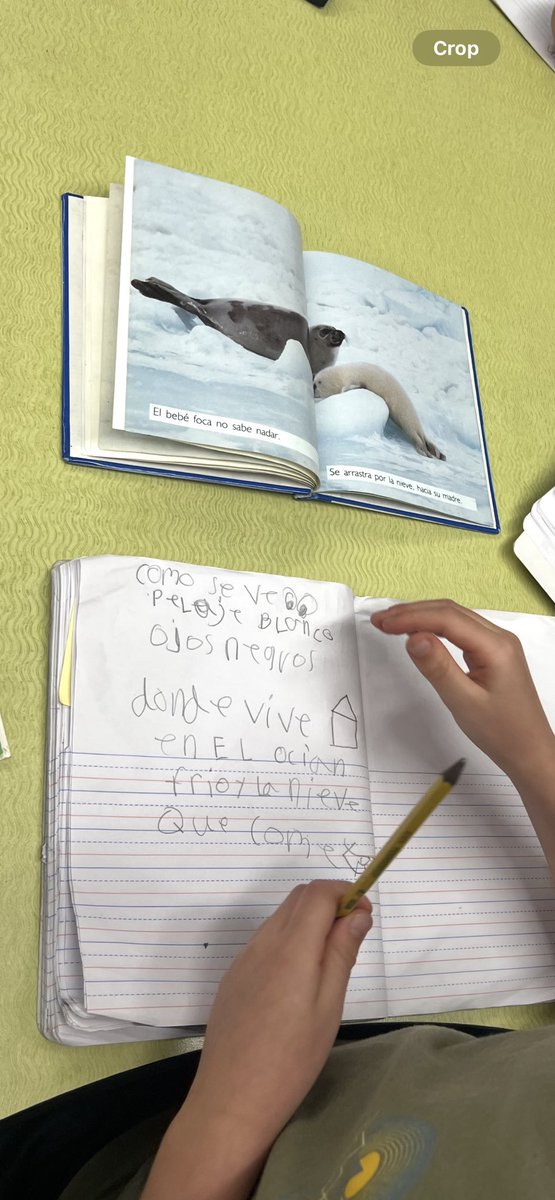 Crop
El bebé foca no sabe nadar.
Se arrastra por la nieve, hacia su madre.
como se ve
PeLaje BLanco
ojos negros
donde vive
en EL ocian
frio y la nieve
Que Come